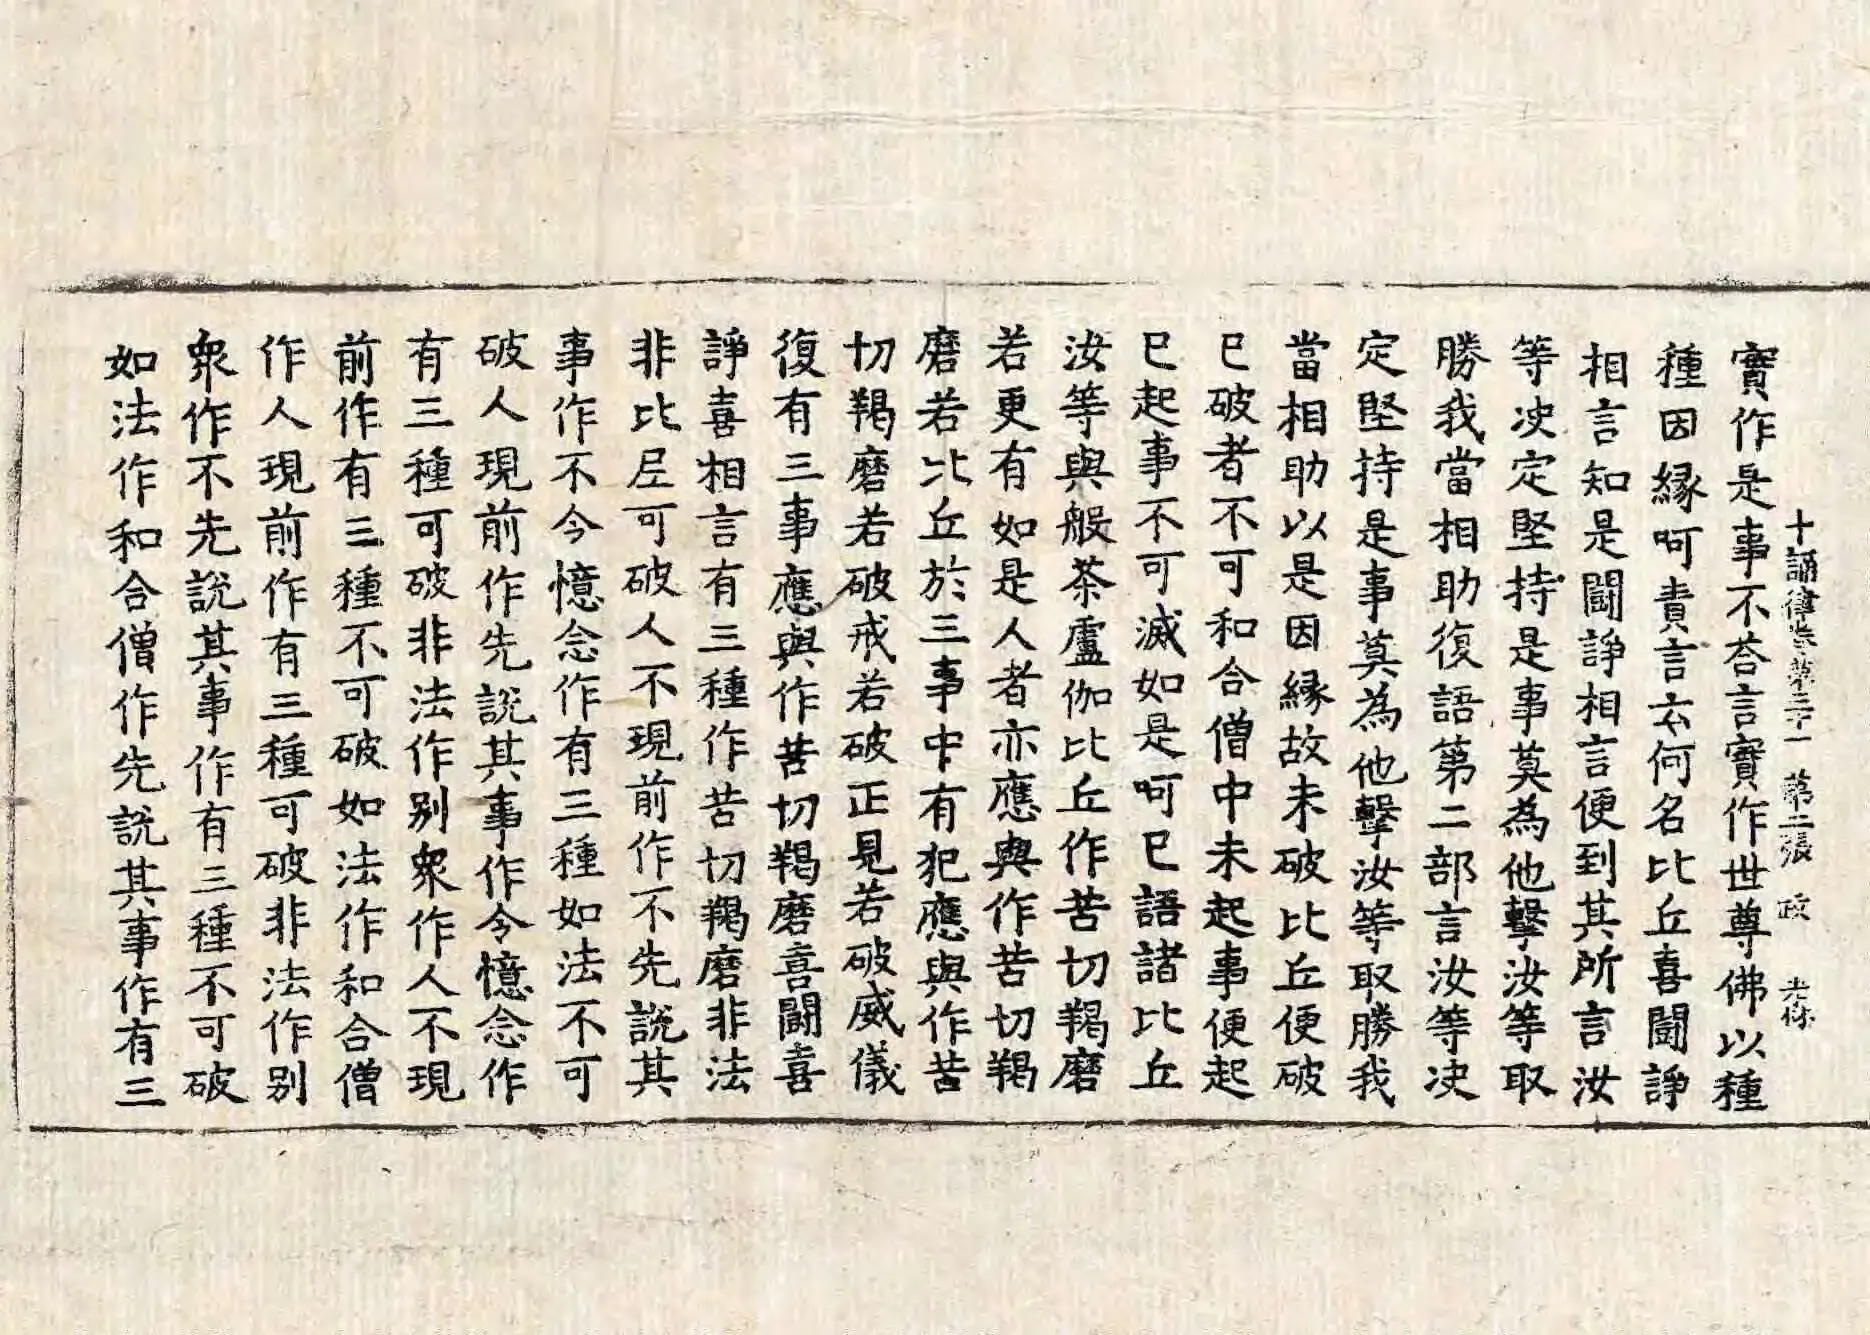 十誦律卷第三十一 第二張 政
實作是事不荅言實作世尊佛以種
種因縁呵責言云何名比丘喜鬪諍
相言知是鬪諍相言便到其所言汝
等决定堅持是事莫為他擊汝等取
勝我當相助復語第二部言汝等决
定堅持是事莫為他擊汝等取勝我
當相助以是因縁故未破比丘便破
已破者不可和合僧中未起事便起
已起事不可滅如是呵已語諸比丘
汝等與般茶盧伽比丘作苦切羯磨
若更有如是人者亦應與作苦切羯
磨若比丘於三事中有犯應與作苦
切羯磨若破戒若破正見若破威儀
復有三事應與作苦切羯磨喜鬪喜
諍喜相言有三種作苦切羯磨非法
非比尼可破人不現前作不先說其
事作不令憶念作有三種如法不可
破人現前作先說其事作令憶念作
有三種可破非法作别衆作人不現
前作有三種不可破如法作和合僧
作人現前作有三種可破非法作别
衆作不先說其事作有三種不可破
如法作和合僧作先說其事作有三